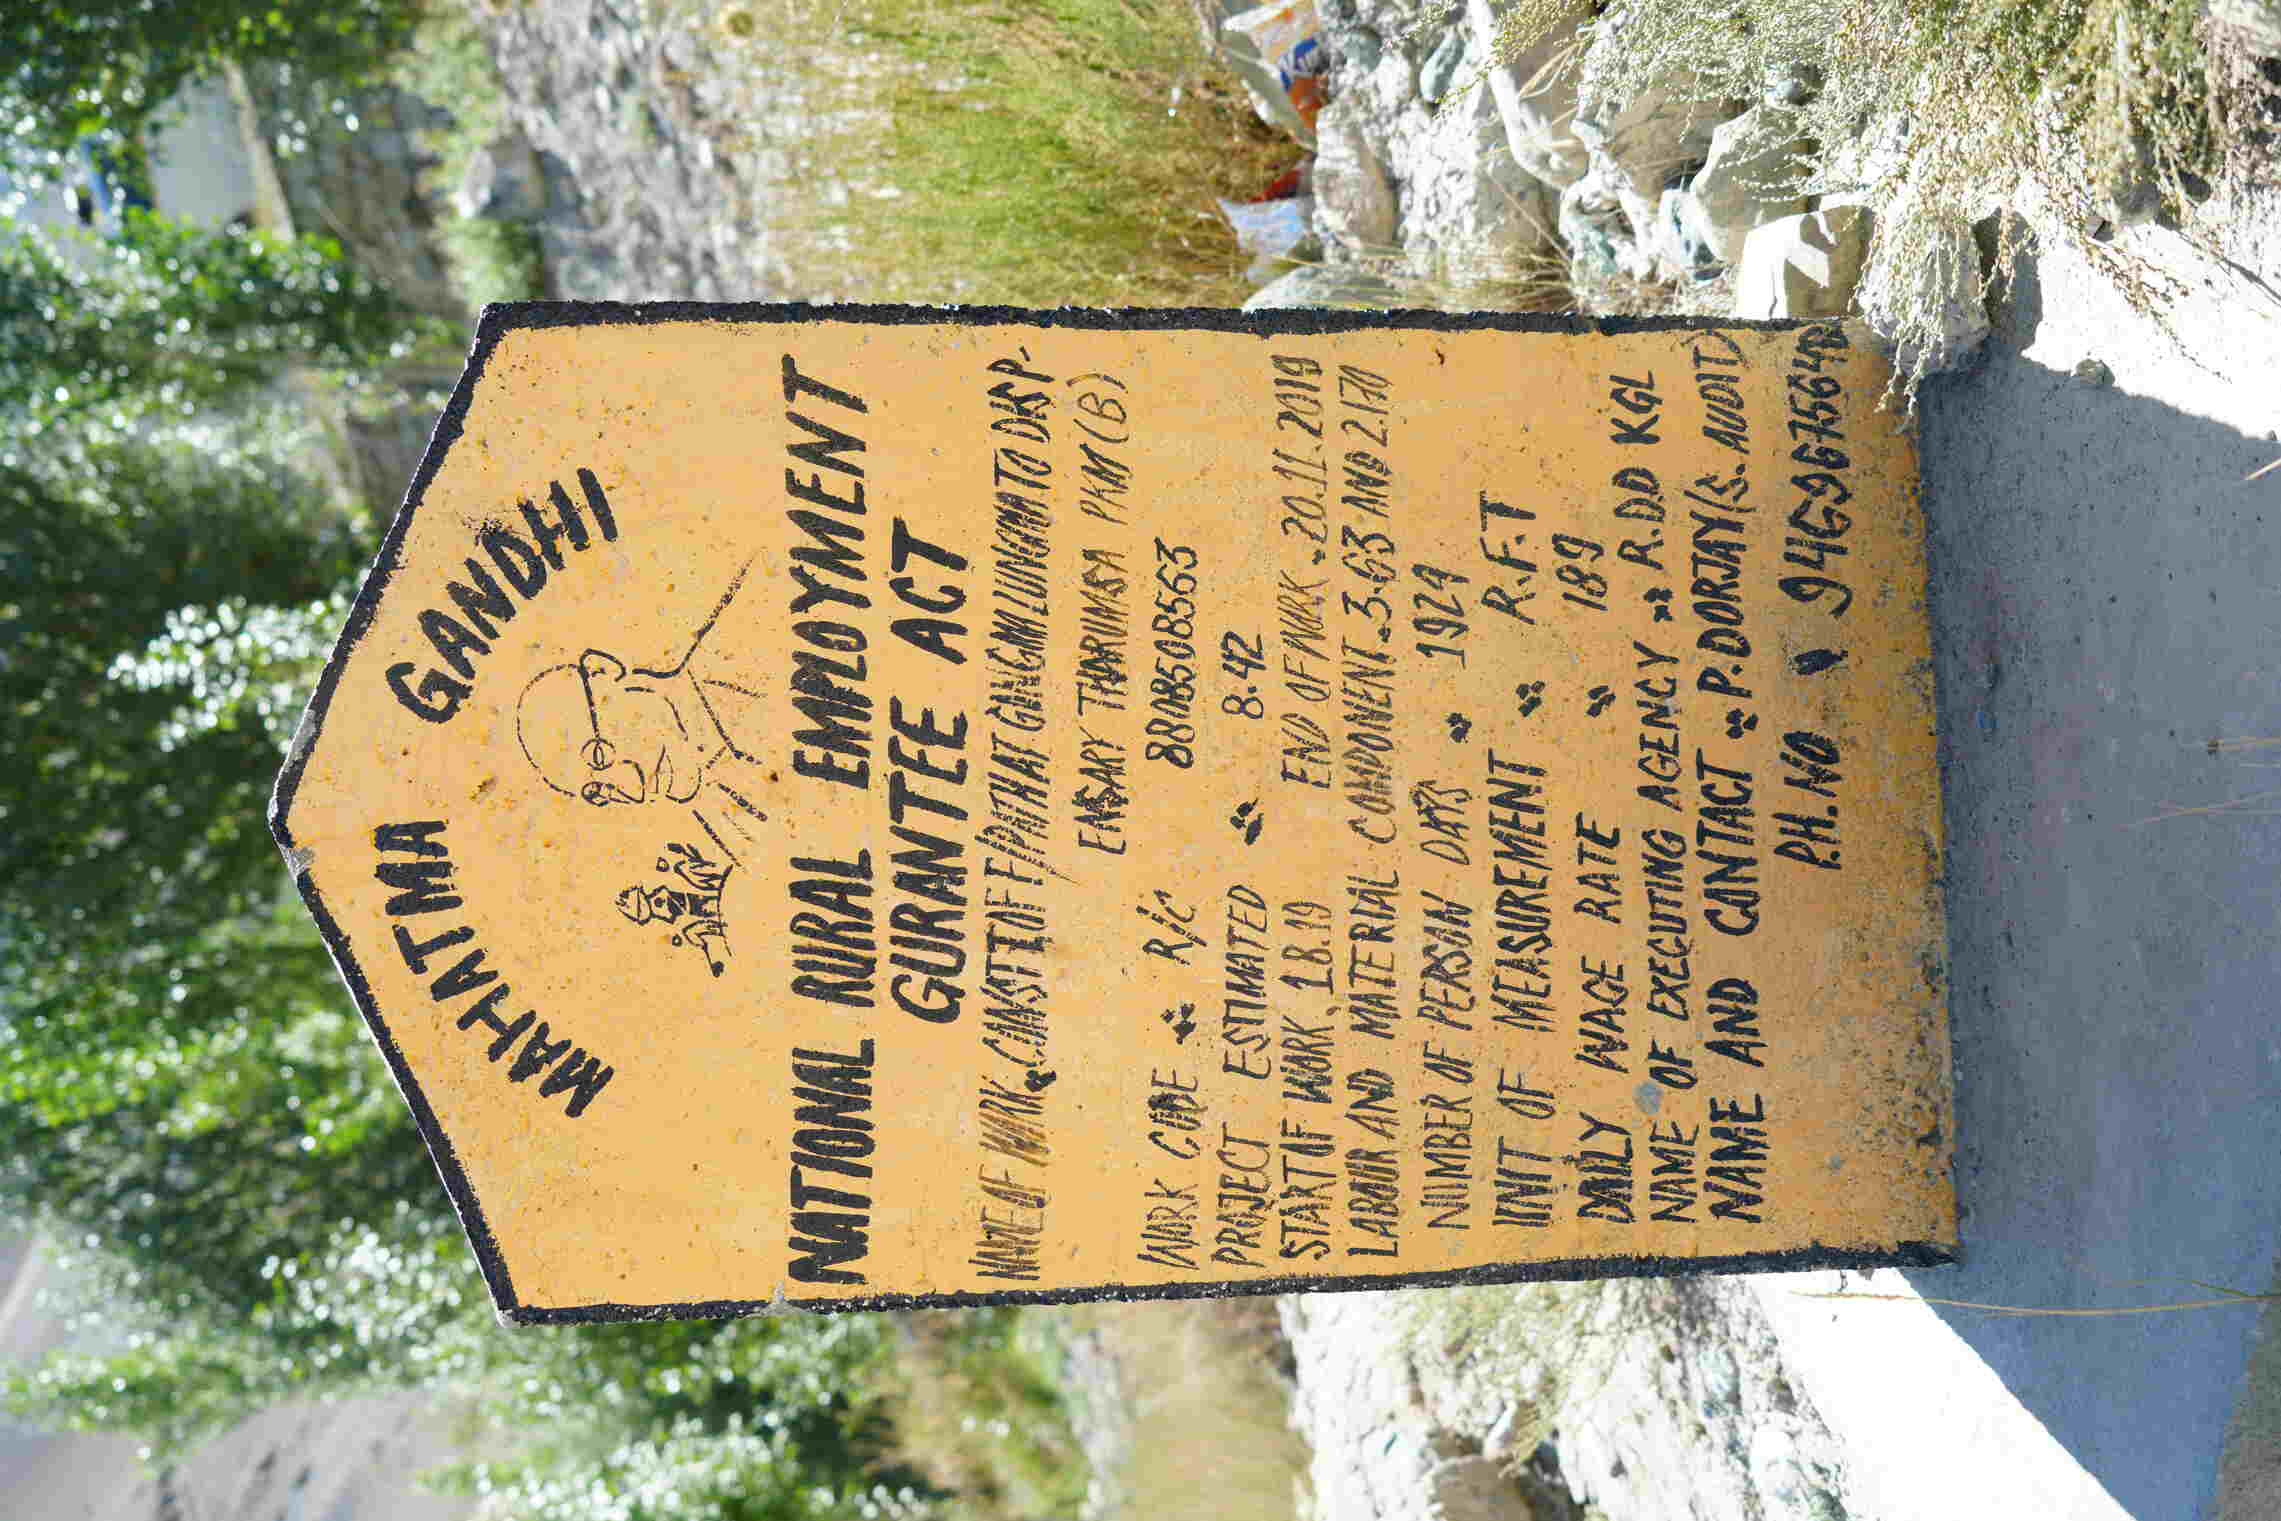 MAHATMA GANDHI
NATIONAL RURAL EMPLOYMENT
GURANTEE ACT
NAME OF WORK. CONST OF F/PATH AT GONGMA LUNGMA TO DISP-
ENSARY THARUMSA PKM (B)
WORK CODE R/C 8808508563
PROJECT ESTIMATED 8.42
START OF WORK. 1.8.19 END OF WORK. 20.11.2019
LABOUR AND MATERIAL COMPONENT. 3.63 AND 2.170
NUMBER OF PERSON DAYS 1929
UNIT OF MEASUREMENT R.F.T
DAILY WAGE RATE 189
NAME OF EXECUTING AGENCY R.D.D KGL
NAME AND CONTACT P. DORJAY (S. AUDIT)
P.H. NO